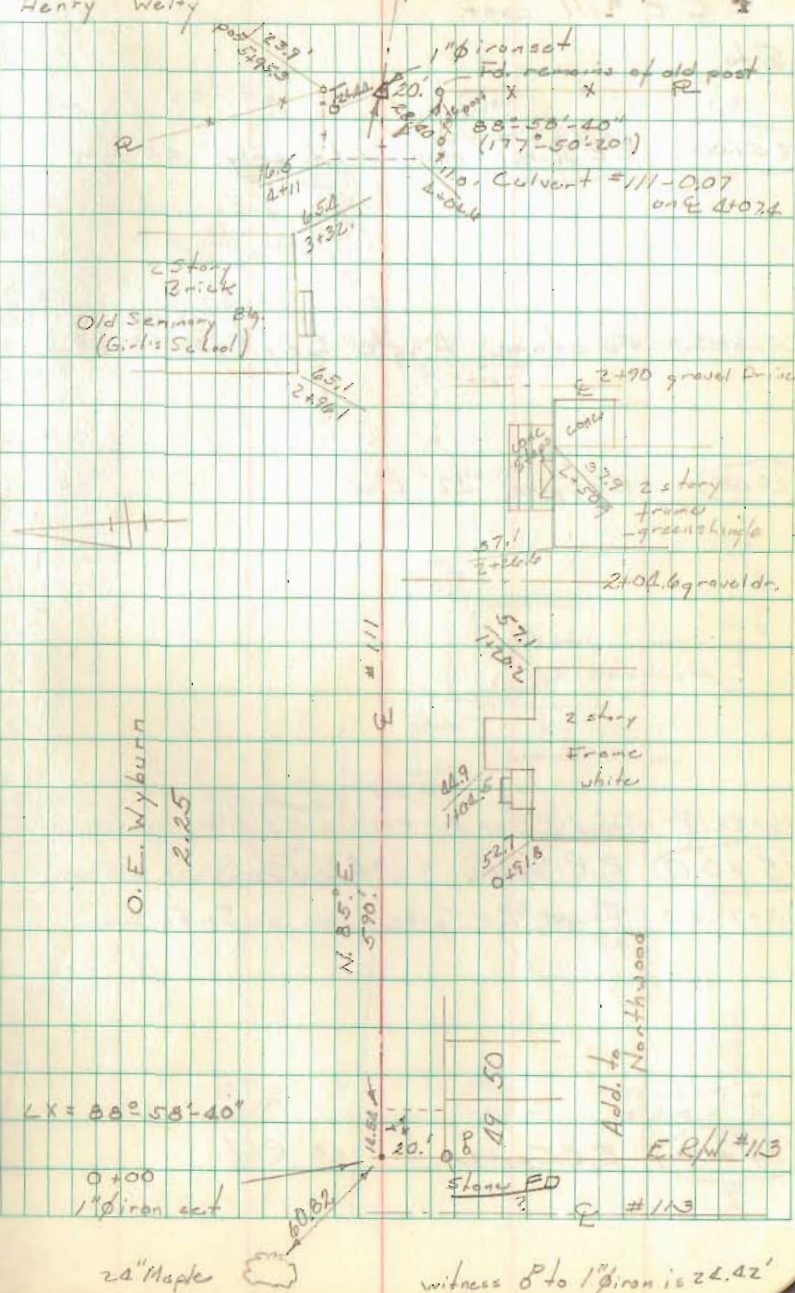 Henry Welty
1"ø iron set
post 23.9'
5+95.3
20.'
Fd. remains of old post
℞
℞
88°-58'-40"
(177°-50'-20")
16.5
4+11
11.0
4+04.6
Culvert #111-0.07
on ℄ 4+07.4
65.4
3+32.
2 Story
Brick
Old Seminary Blg.
(Girl's School)
65.1
2+96.1
℄ 2+90 gravel Drive
conc
conc
Steps
37.9
2+50.9
2 story
frame
-greenshingle
37.1
2+26.6
2+04.6 gravel dr.
57.1
1+20.2
℄ #111
2 story
Frame
white
44.9
1+04.5
52.7
0+91.8
O. E. Wyburn
2.25
N. 85.° E.
590.'
Add. to
Northwood
49 50
LX = 88°-58'-40"
20.'
E. R/W #113
0+00
1"ø iron set
Stone FD
?
℄ #113
60.82
24" Maple
witness to 1"ø iron is 24.42'